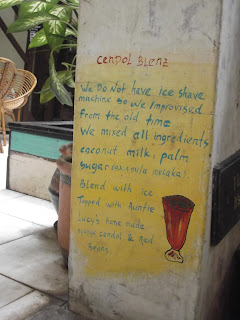 Cendol Blenz
We Do Not have ice shave
machine so we improvised
from the old time
We mixed all ingredients
coconut milk, palm
sugar (gula melaka).
Blend with ice
Topped with Auntie
Lucy's home made
cendol & Red
Beans